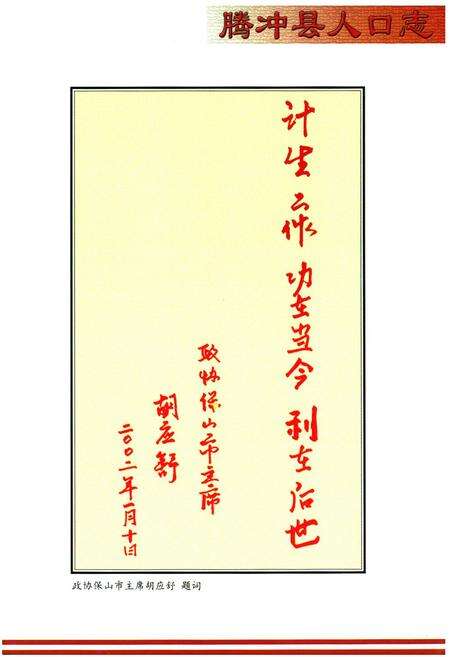 腾冲县人口志
计生工作 功在当今 利在后世
政协保山市主席
胡应舒
二〇〇二年一月十日
政协保山市主席胡应舒 题词